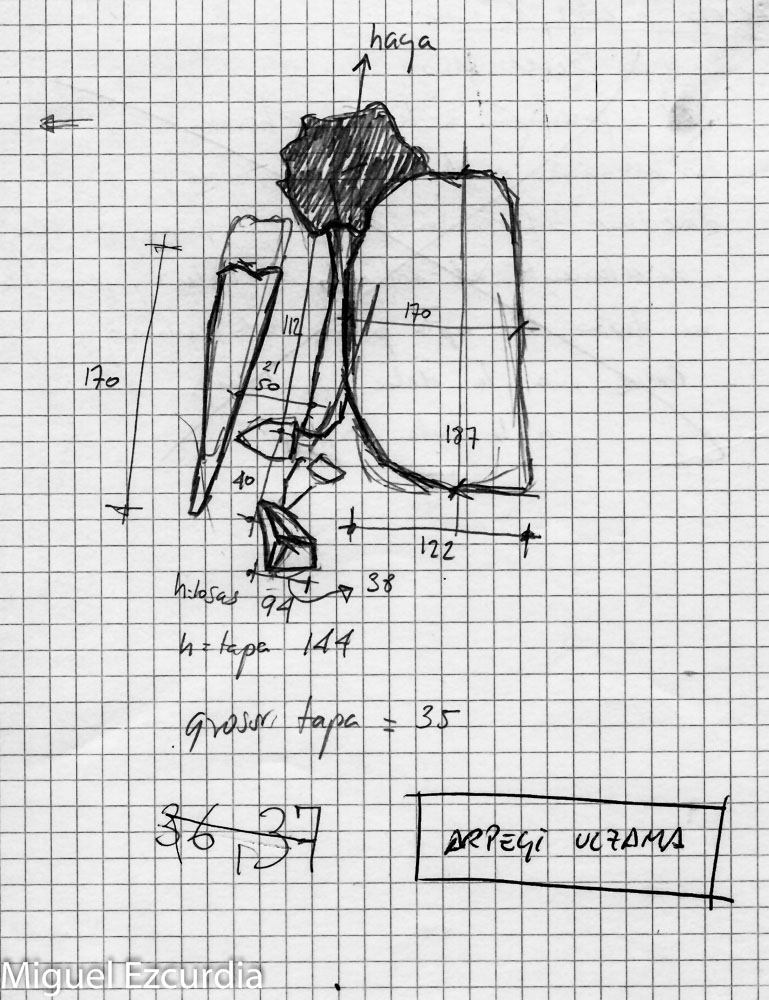 haya
170
112
170
21
50
187
40
122
h=losas 94 38
h=tapa 144
grossor tapa = 35
36 37
ARPEGI ULZAMA
Miguel Ezcurdia